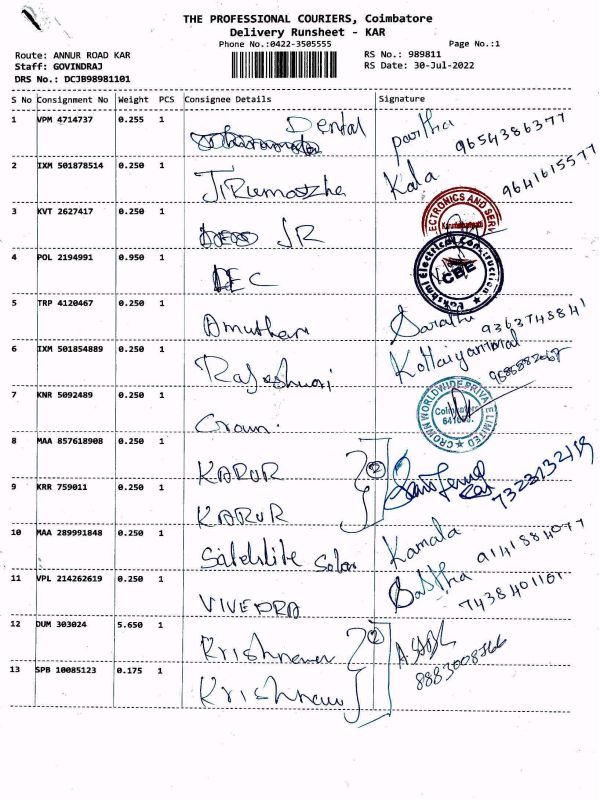 THE PROFESSIONAL COURIERS, Coimbatore
Delivery Runsheet - KAR
Phone No.:0422-3505555 Page No.:1
Route: ANNUR ROAD KAR RS No.: 989811
Staff: GOVINDRAJ RS Date: 30-Jul-2022
DRS No.: DCJB98981101
S No Consignment No Weight PCS Consignee Details Signature
1 VPM 4714737 0.255 1 Dental partha 9654386377
2 IXM 501878514 0.250 1 Kala 9641615577
3 KVT 2627417 0.250 1 JR ECTRONICS AND SERV
4 POL 2194991 0.950 1 DEC Lakshmi Electrical Construction CBE
5 TRP 4120467 0.250 1 Amuthan Sarathi 9363745841
6 IXM 501854889 0.250 1 Rajeshwari Kottaiyammal
7 KNR 5092489 0.250 1 Crown. CROWN WORLDWIDE PRIVATE LIMITED Coimbatore
8 MAA 857618908 0.250 1 KARUR 2
9 KRR 759011 0.250 1 KARUR 7323132119
10 MAA 289991848 0.250 1 Satellite Solar Kamala 9141884077
11 VPL 214262619 0.250 1 7438401161
12 DUM 303024 5.650 1 2
13 SPB 10085123 0.175 1